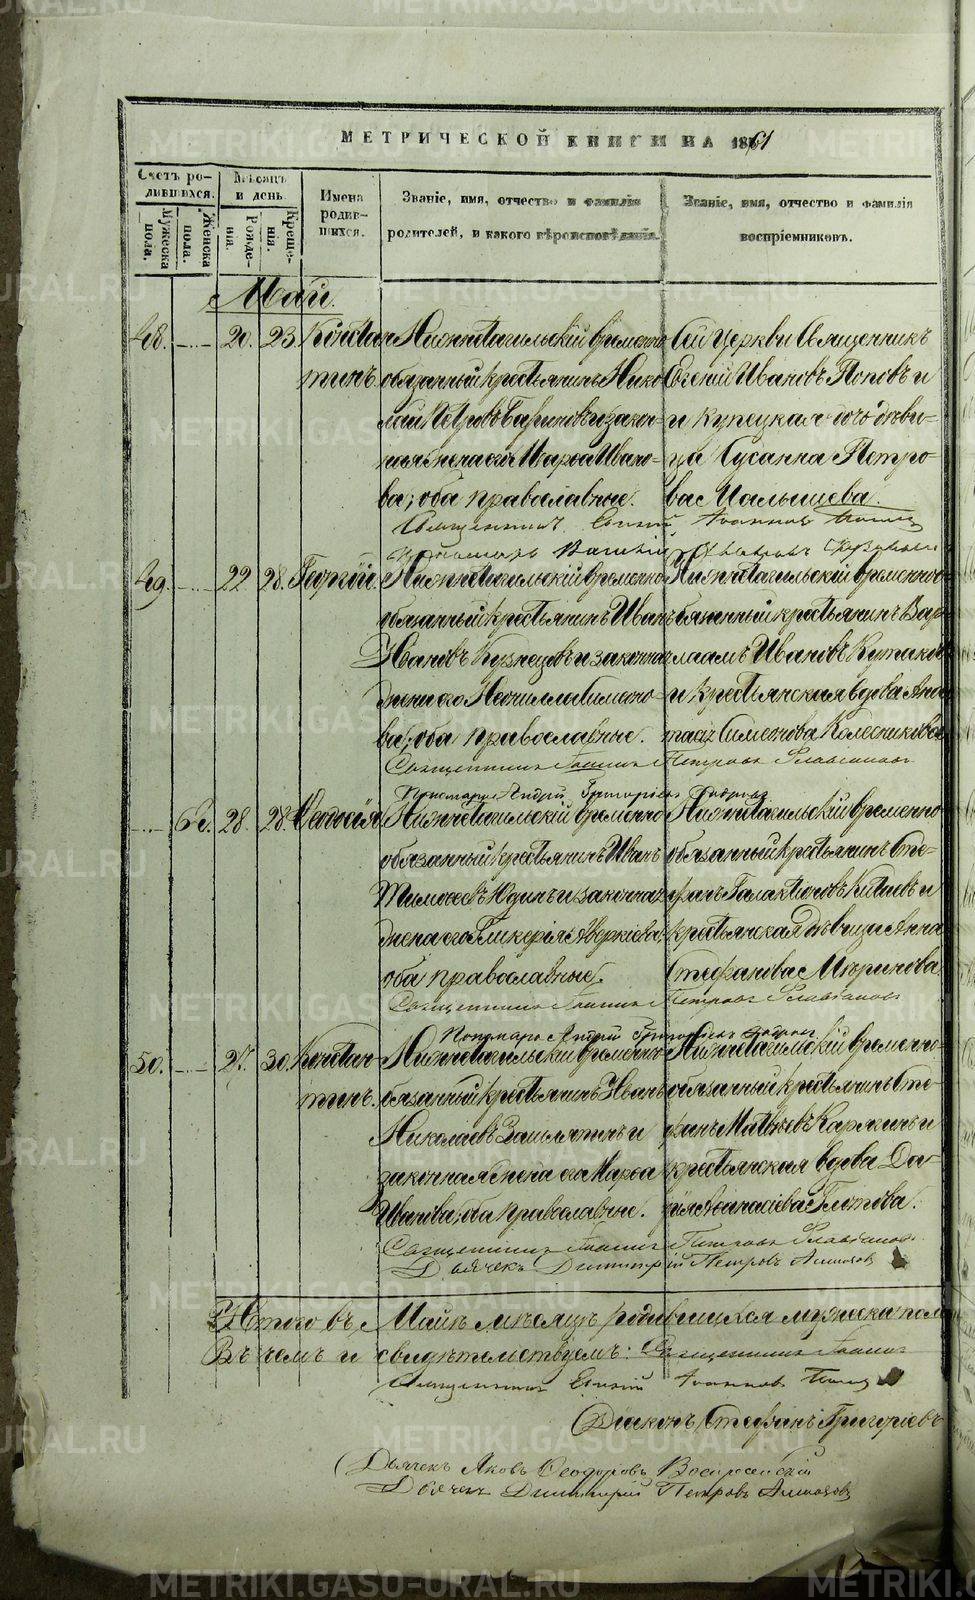 МЕТРИЧЕСКОЙ КНИГИ НА 1861
Счетъ ро-
дившихся.
Мужеска пола.
Женска пола.
Мѣсяцъ
и день
Рожде-
нія.
Креще-
нія.
Имена
родив-
шихся.
Званіе, имя, отчество и фамилія
родителей, и какого вѣроисповѣданія.
Званіе, имя, отчество и фамилія
воспріемниковъ.
Май.
48. 20. 23. Констан-
тинъ.
Нижнетагильскій временно
обязанный крестьянинъ Нико
лай Петровъ Бариновъ и закон-
ная жена его Марѳа Ивано-
ва; оба православные.
Сей Церкви Священникъ
Евгеній Ивановъ Поповъ и
и купецкая дочь дѣви-
ца Сусанна Петро-
ва Малышева.
Священникъ Евгеній Іоанновъ Поповъ
49. 22. 28. Георгій.
Нижнетагильскій временно-
обязанный крестьянинъ Иванъ
Ивановъ Кузнецовъ и законная
жена его Неонилла Симено-
ва; оба православные.
Нижнетагильскій временно-
обязанный крестьянинъ Вар-
лаамъ Ивановъ
и крестьянская вдова Анас
тасія Симеонова Колесникова
Священникъ Іоаннъ Петровъ Славниновъ
Пономарь Андрей Григорьевъ
28. 28. Ѳеодосія
Нижнетагильскій временно
обязанный крестьянинъ Иванъ
Тимоѳеевъ Юдинъ и законная
жена его Гликерія Аверкіева;
оба православные.
Нижнетагильскій временно
обязанный крестьянинъ Сте-
фанъ Галактіоновъ Китаевъ и
крестьянская дѣвица Анна
Стефанова Мѣринова.
Священникъ Іоаннъ Петровъ
Пономарь Андрей Григорьевъ
50. 27. 30. Констан-
тинъ.
Нижнетагильскій временно-
обязанный крестьянинъ Иванъ
Николаевъ и
законная жена его Марѳа
Иванова; оба православные.
Нижнетагильскій временно-
обязанный крестьянинъ Сте-
фанъ Матвѣевъ Карягинъ и
крестьянская вдова Да-
рія Аѳанасіева Глотова.
Священникъ Іоаннъ Петровъ
Дьячекъ Димитрій Петровъ
Итого въ Маѣ мѣсяцѣ родившихся мужеска пола
Въ чемъ и свидѣтельствуемъ: Священникъ Іоаннъ
Священникъ Евгеній Іоанновъ Поповъ
Діаконъ Стефанъ Григорьевъ
Дьячекъ Яковъ Ѳеодоровъ Воскресенскій
Дьячекъ Димитрій Петровъ
METRIKI.GASO-URAL.RU